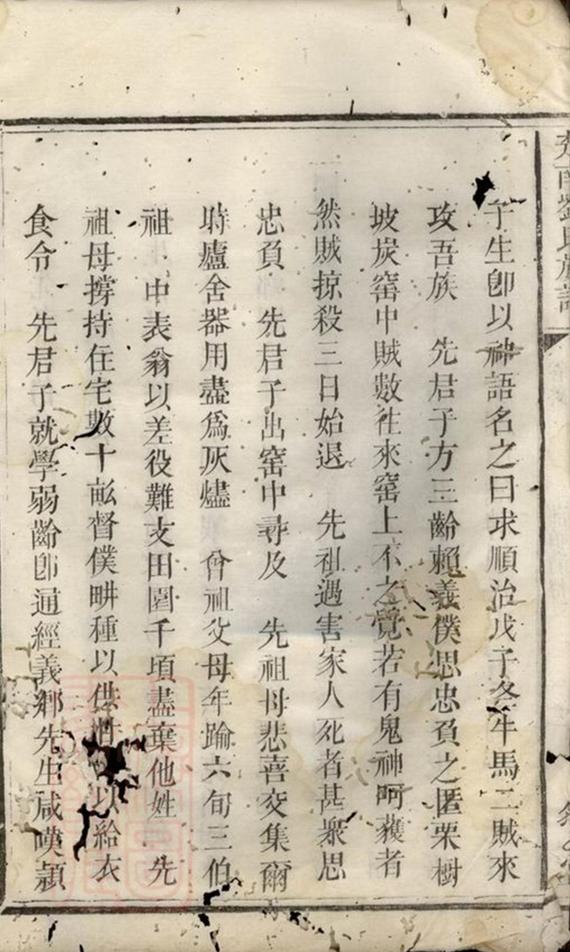 子生卽以神語名之曰求順治戊子冬牛馬二賊來
攻吾族 先君子方三齡賴義僕思忠負之匿栗樹
坡炭窑中賊數徃來窑上不之覺若有鬼神呵護者
然賊掠殺三日始退 先祖遇害家人死者甚衆思
忠負 先君子出窑中尋及 先祖母悲喜交集爾
時廬舍器用盡爲灰燼 曾祖父母年踰六旬三伯
祖 中表翁以差役難支田園千頃盡棄他姓 先
祖母撐持住宅數十畝督僕畊種以供 以給衣
食令 先君子就學弱齡卽通經義鄉先生咸嘆頴
南劉氏族譜